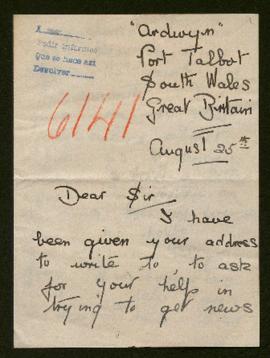 "Ardwyn"
Port Talbot
South Wales
Great Britain
Pedir informes
Que se hace asi
Devolver
6141
August 25th
Dear Sir
I have
been given your address
to write to, to ask
for your help in
trying to get news